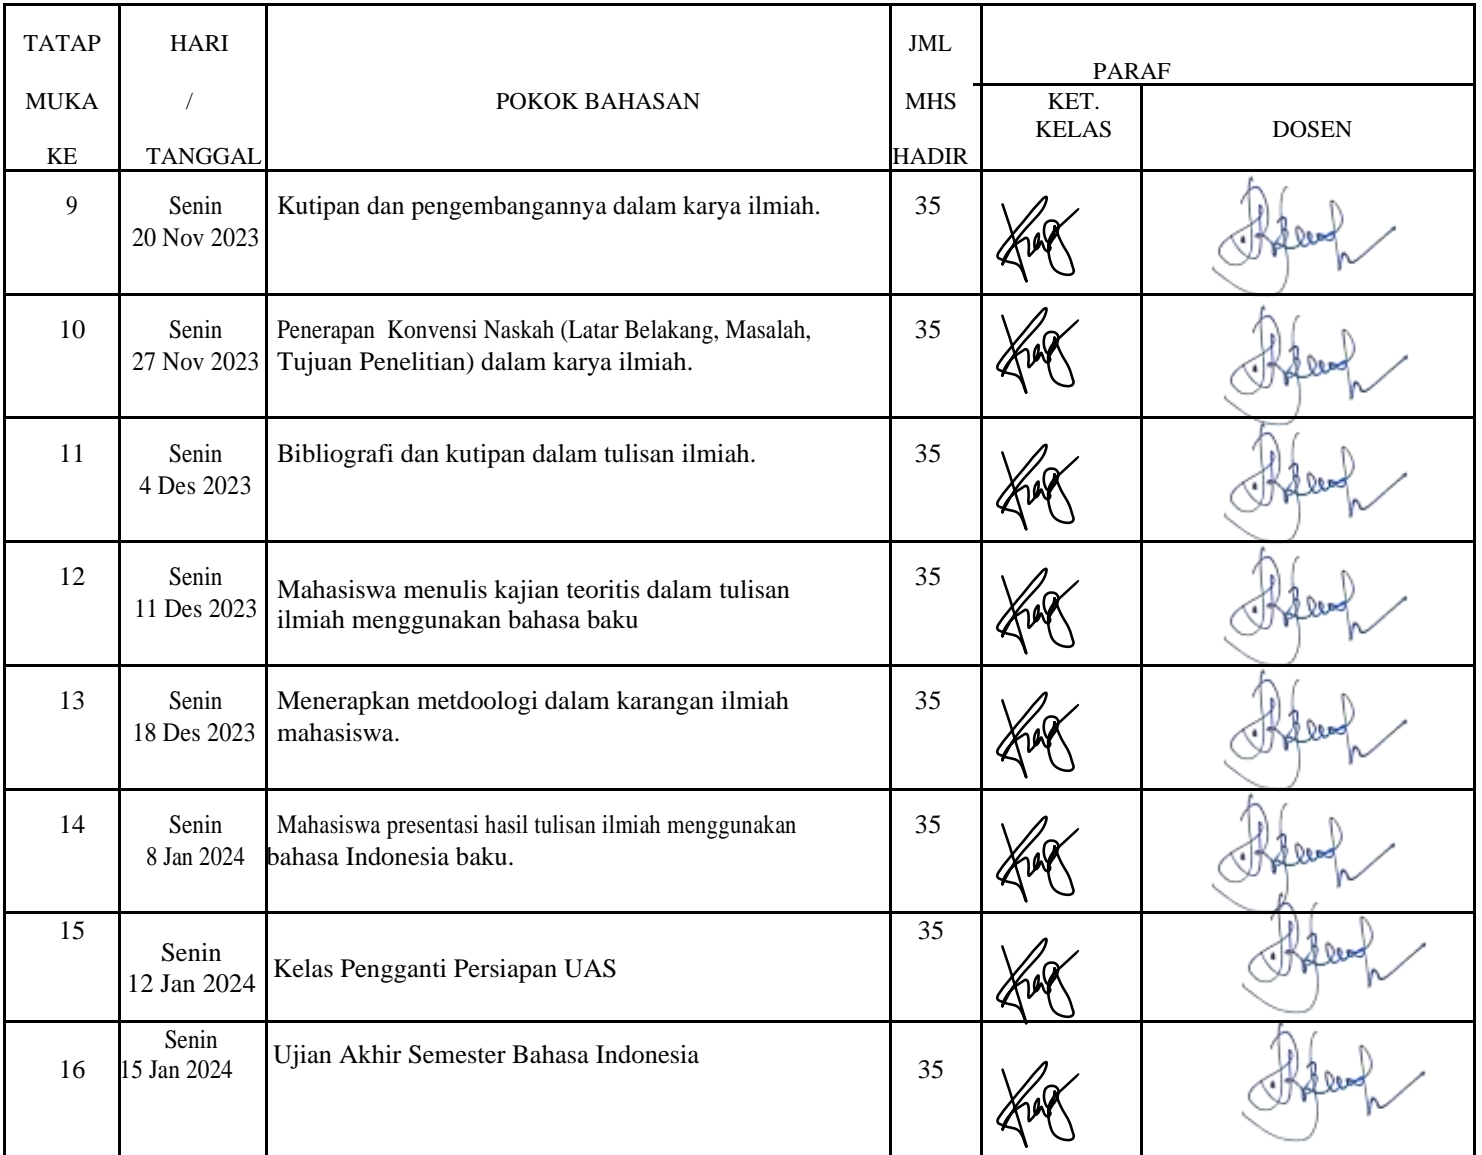 TATAP MUKA KE
HARI / TANGGAL
POKOK BAHASAN
JML MHS HADIR
PARAF
KET. KELAS
DOSEN
9
Senin
20 Nov 2023
Kutipan dan pengembangannya dalam karya ilmiah.
35
10
Senin
27 Nov 2023
Penerapan Konvensi Naskah (Latar Belakang, Masalah,
Tujuan Penelitian) dalam karya ilmiah.
35
11
Senin
4 Des 2023
Bibliografi dan kutipan dalam tulisan ilmiah.
35
12
Senin
11 Des 2023
Mahasiswa menulis kajian teoritis dalam tulisan
ilmiah menggunakan bahasa baku
35
13
Senin
18 Des 2023
Menerapkan metdoologi dalam karangan ilmiah
mahasiswa.
35
14
Senin
8 Jan 2024
Mahasiswa presentasi hasil tulisan ilmiah menggunakan
bahasa Indonesia baku.
35
15
Senin
12 Jan 2024
Kelas Pengganti Persiapan UAS
35
16
Senin
15 Jan 2024
Ujian Akhir Semester Bahasa Indonesia
35